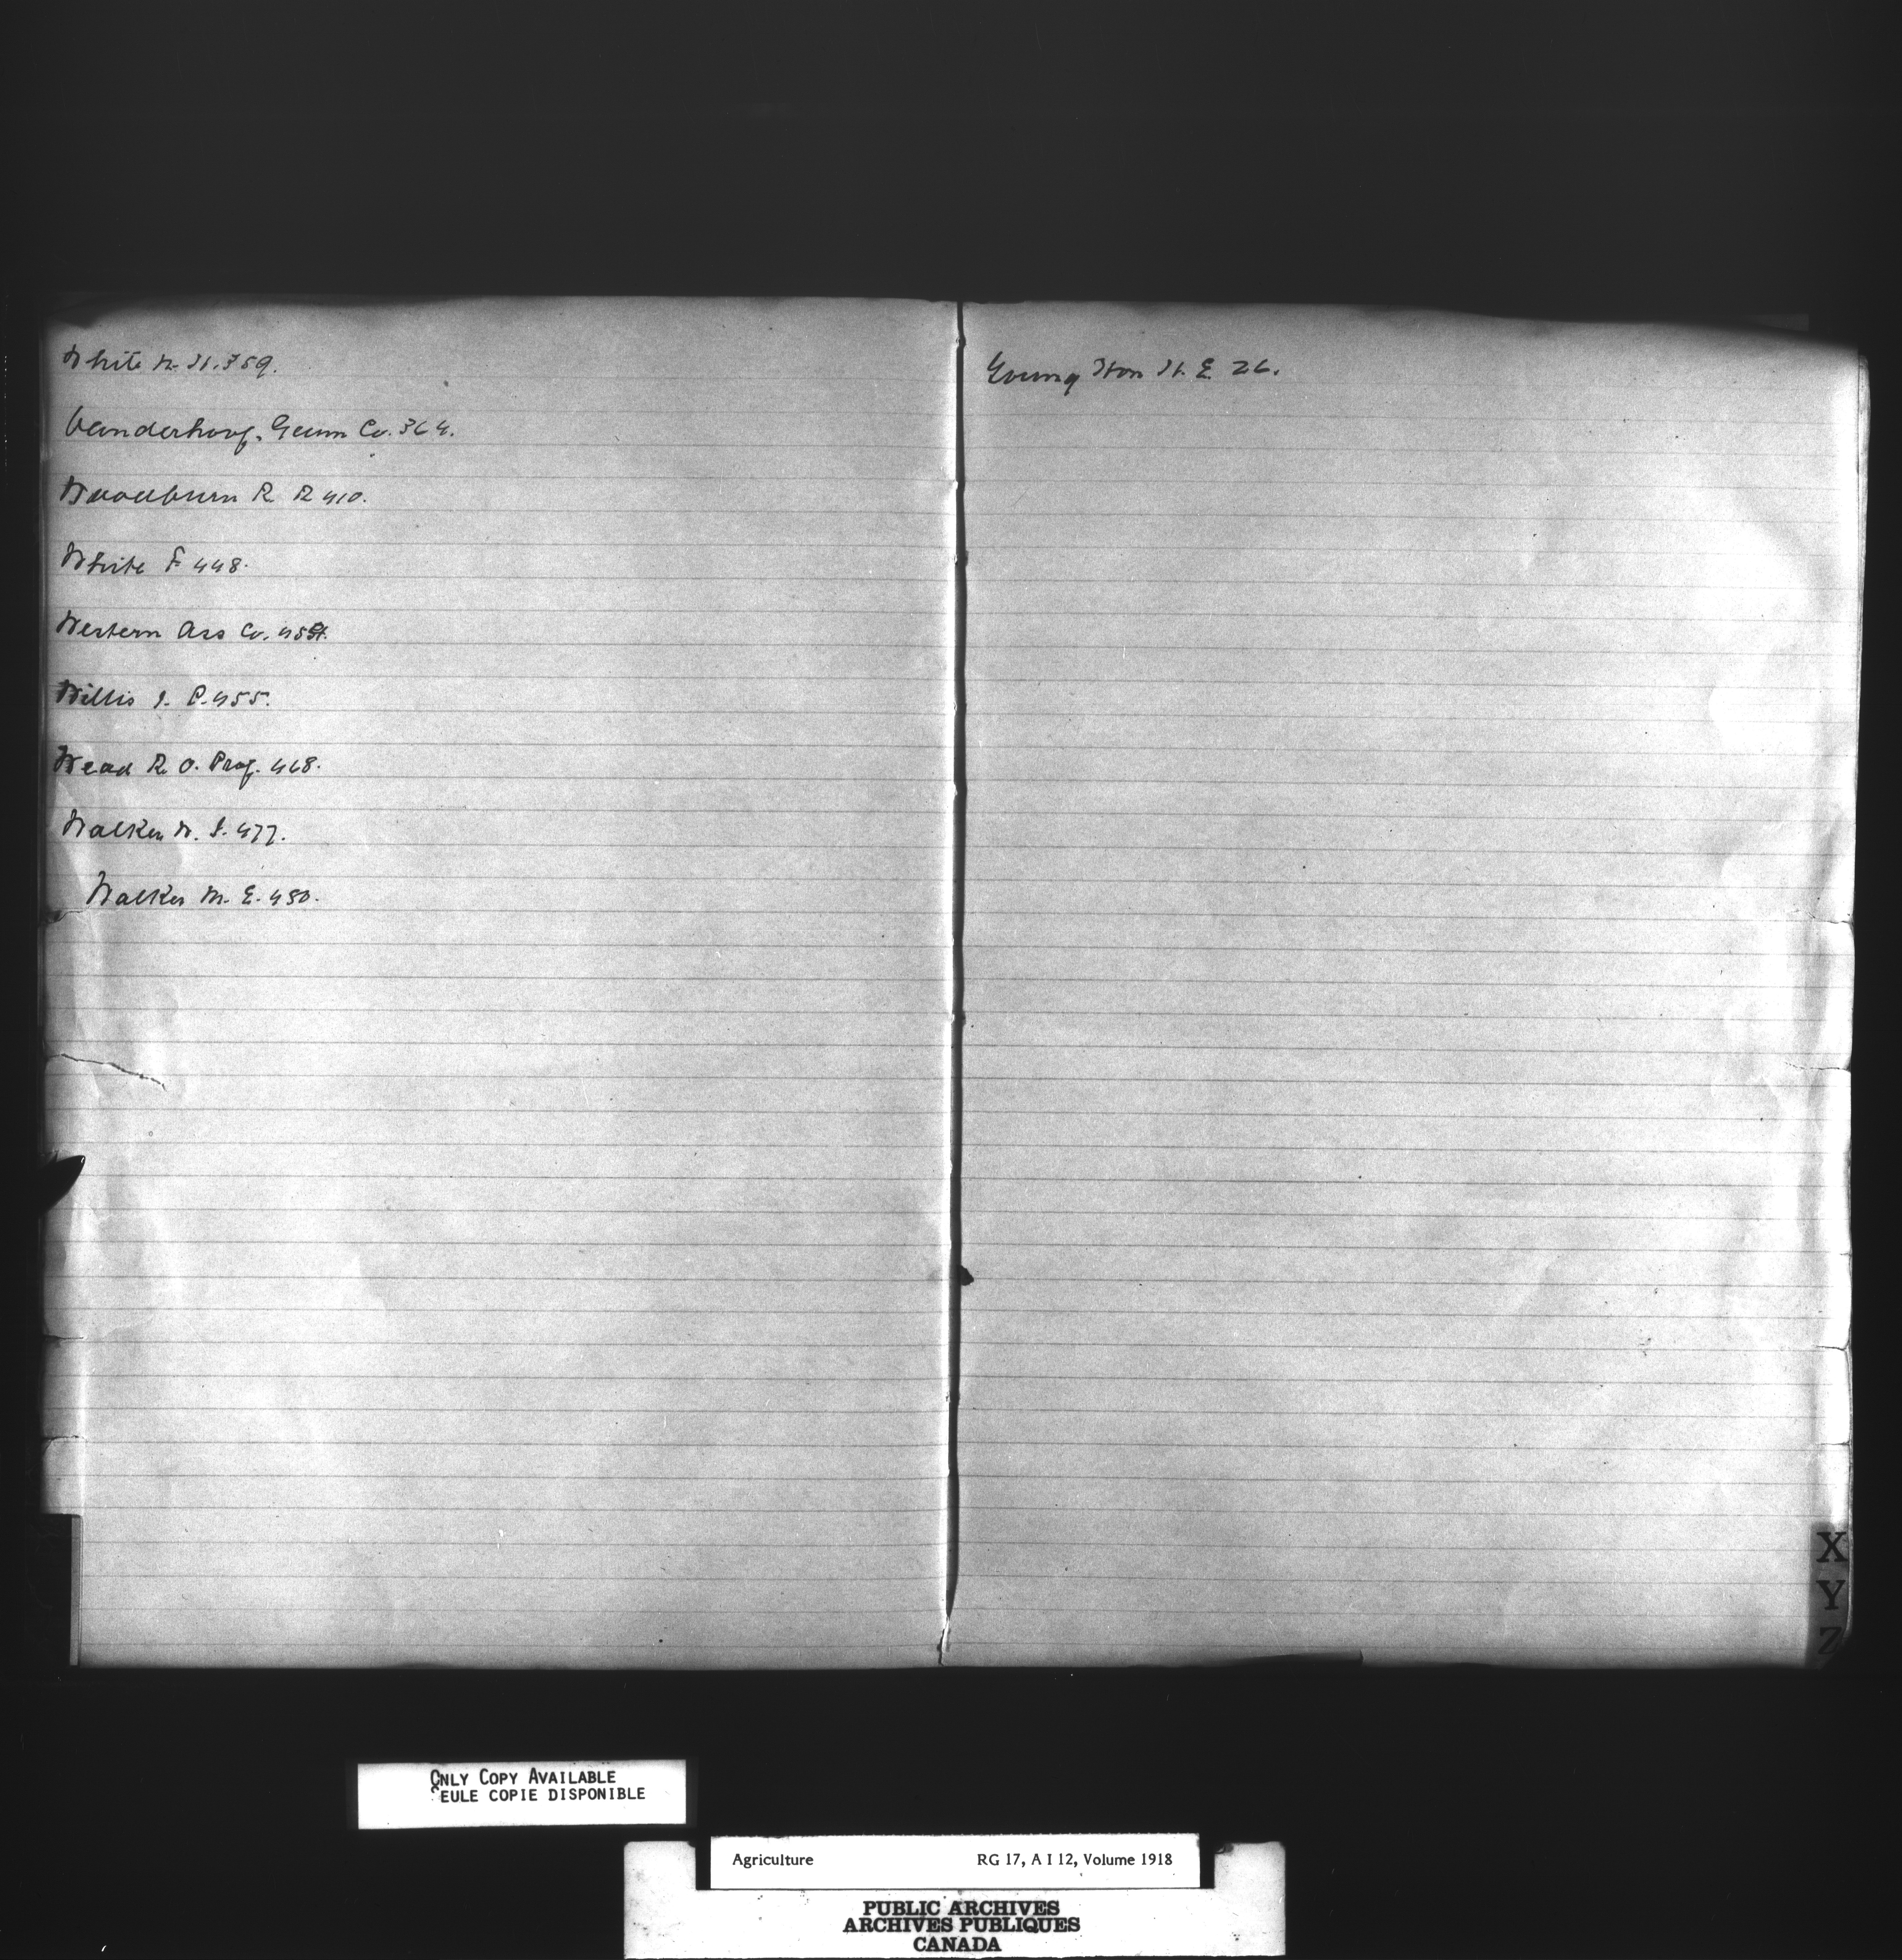 White W. H. 359.
Vanderhoof, Gunn Co. 364.
Woodburn R R 410.
White F 448.
Western Ass Co.
Willis J. P. 455.
Wead R. O. Prof. 468.
Walker W. J. 477.
Walker M. E. 480.
Young Hon H. E. 26.
X
Y
Z
ONLY COPY AVAILABLE
SEULE COPIE DISPONIBLE
Agriculture RG 17, A I 12, Volume 1918
PUBLIC ARCHIVES
ARCHIVES PUBLIQUES
CANADA